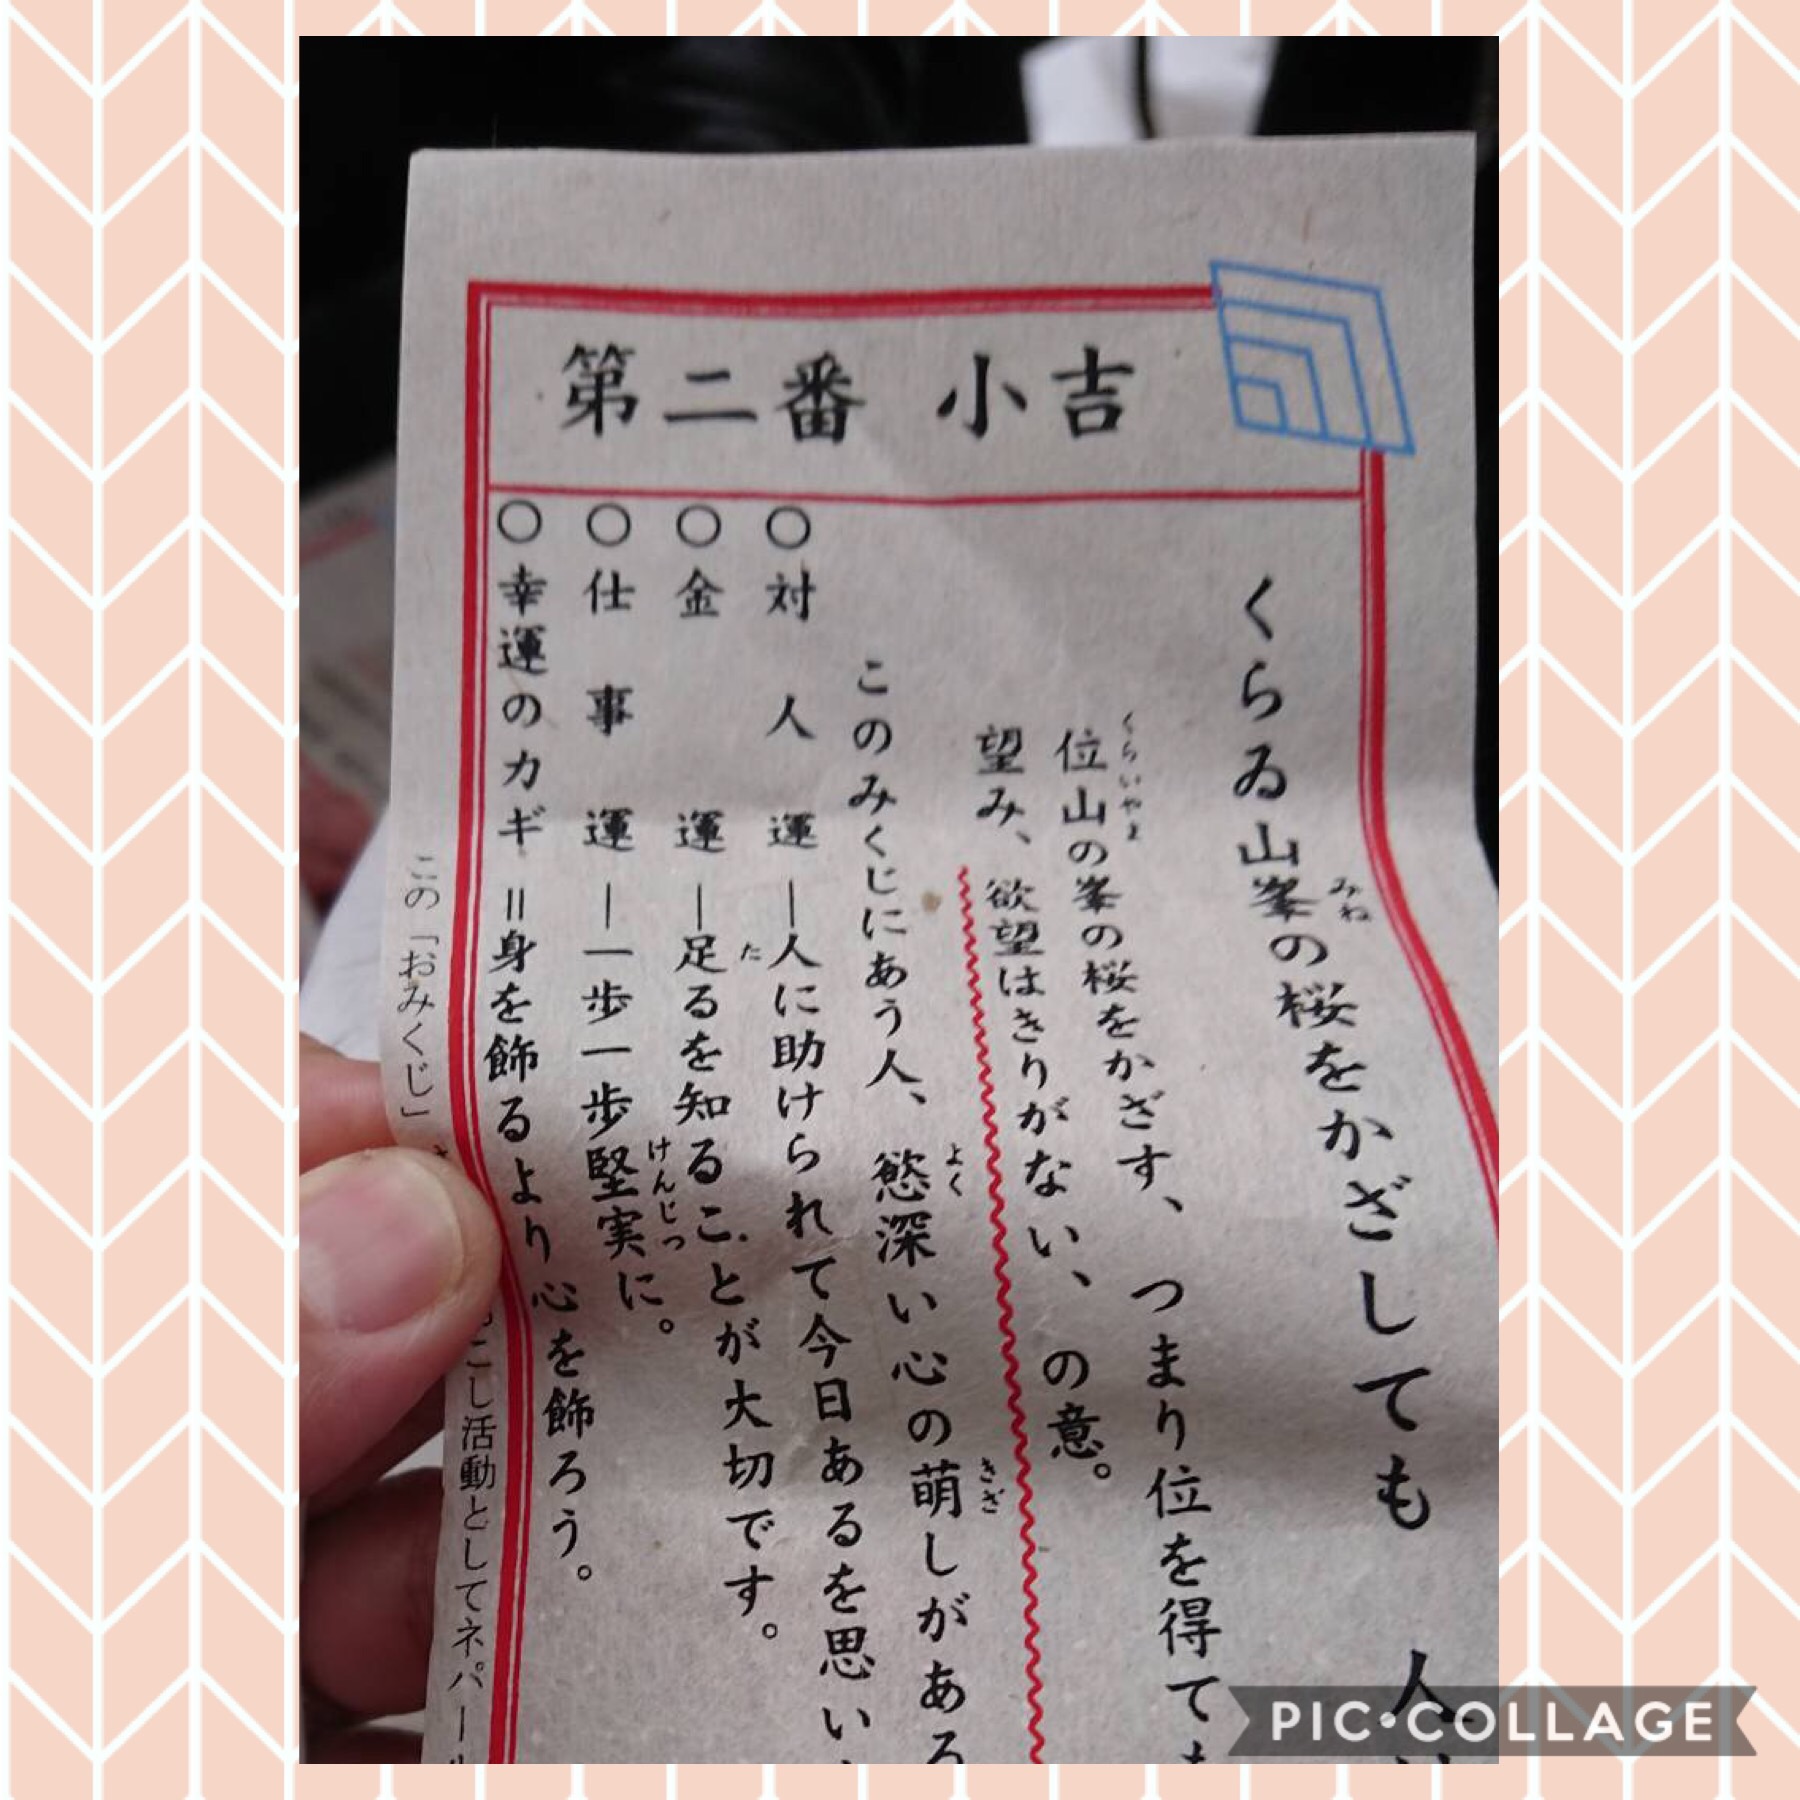 第二番 小吉
くらゐ山峯の桜をかざしても 人
みね
位山の峯の桜をかざす、つまり位を得ても
くらいやま
望み、欲望はきりがない、の意。
このみくじにあう人、慾深い心の萌しがある
よく
きざ
○対人運―人に助けられて今日あるを思い
○金運―足るを知ることが大切です。
た
○仕事運―一歩一歩堅実に。
けんじつ
○幸運のカギ=身を飾るより心を飾ろう。
この「おみくじ」
こし活動としてネパール
PIC•COLLAGE